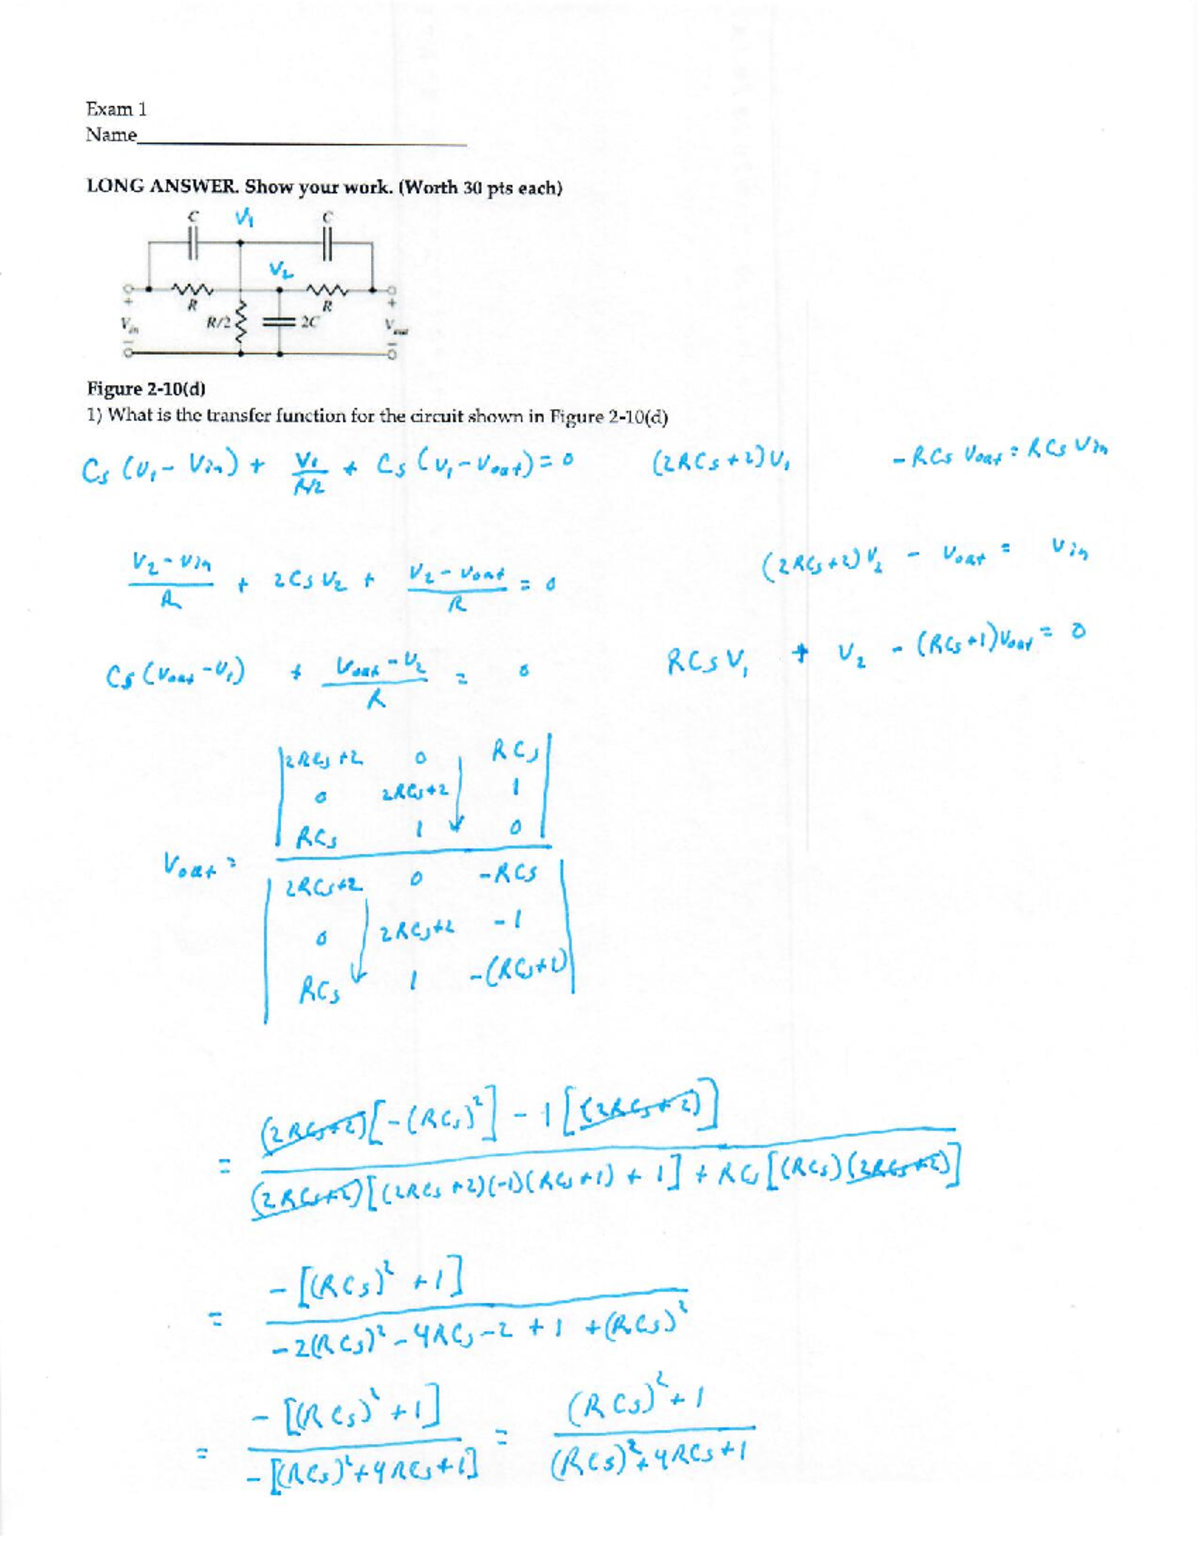 Exam 1
Name
LONG ANSWER. Show your work. (Worth 30 pts each)
C V₁ C
V₂
R R
R/2 2C
+ +
V_in V_out
− −
Figure 2-10(d)
1) What is the transfer function for the circuit shown in Figure 2-10(d)
Cs (V₁ - Vin) + V₁/(R/2) + Cs (V₁ - Vout) = 0 (2RCs + 2)V₁ - RCs Vout = RCs Vin
(V₂ - Vin)/R + 2Cs V₂ + (V₂ - Vout)/R = 0 (2RCs + 2)V₂ - Vout = Vin
Cs (Vout - V₁) + (Vout - V₂)/R = 0 RCs V₁ + V₂ - (RCs + 1)Vout = 0
2RCs + 2 0 RCs
0 2RCs + 2 1
RCs 1 0
Vout =
2RCs + 2 0 -RCs
0 2RCs + 2 -1
RCs 1 -(RCs + 1)
(2RCs + 2)[-(RCs)²] - 1[(2RCs + 2)]
=
(2RCs + 2)[(2RCs + 2)(-1)(RCs + 1) + 1] + RCs[(RCs)(2RCs + 2)]
- [(RCs)² + 1]
=
-2(RCs)² - 4RCs - 2 + 1 + (RCs)²
- [(RCs)² + 1] (RCs)² + 1
= =
- [(RCs)² + 4RCs + 1] (RCs)² + 4RCs + 1